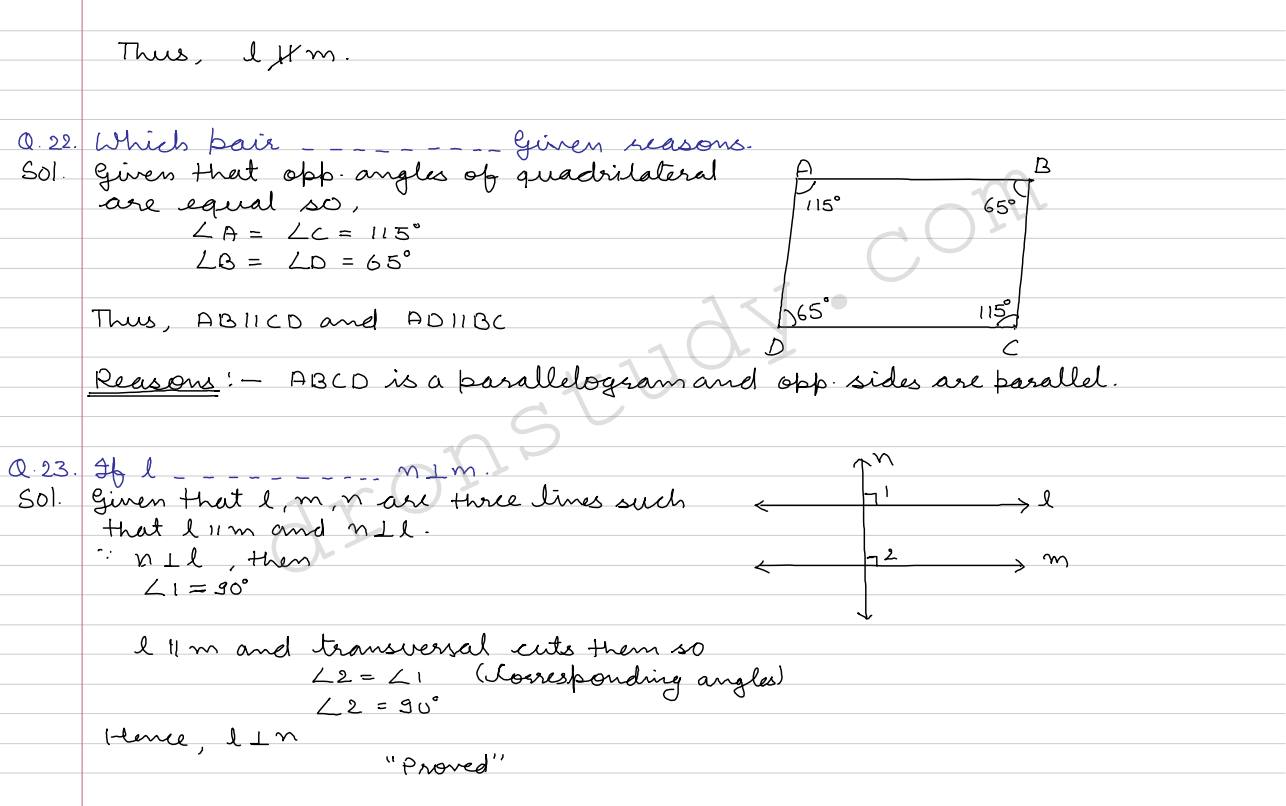 Thus, l ∦ m.
Q.22. Which pair _ _ _ _ _ _ _ _ _ Given reasons.
Sol. Given that opp. angles of quadrilateral
are equal so,
∠A = ∠C = 115°
∠B = ∠D = 65°
Thus, AB||CD and AD||BC
A B
115° 65°
65° 115°
D C
Reasons :- ABCD is a parallelogram and opp. sides are parallel.
Q.23. If l _ _ _ _ _ _ _ _ _ _ _ n⊥m.
Sol. Given that l, m, n are three lines such
that l || m and n⊥l.
∵ n⊥l, then
∠1 = 90°
l || m and transversal cuts them so
∠2 = ∠1 (Corresponding angles)
∠2 = 90°
Hence, l⊥n
"Proved"
n
1 l
2 m
dronstudy.com